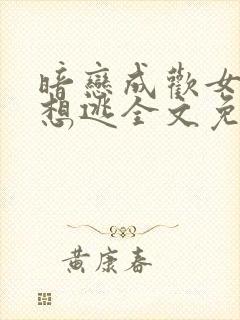 暗戀成歡女
想逃全文免
黃康春